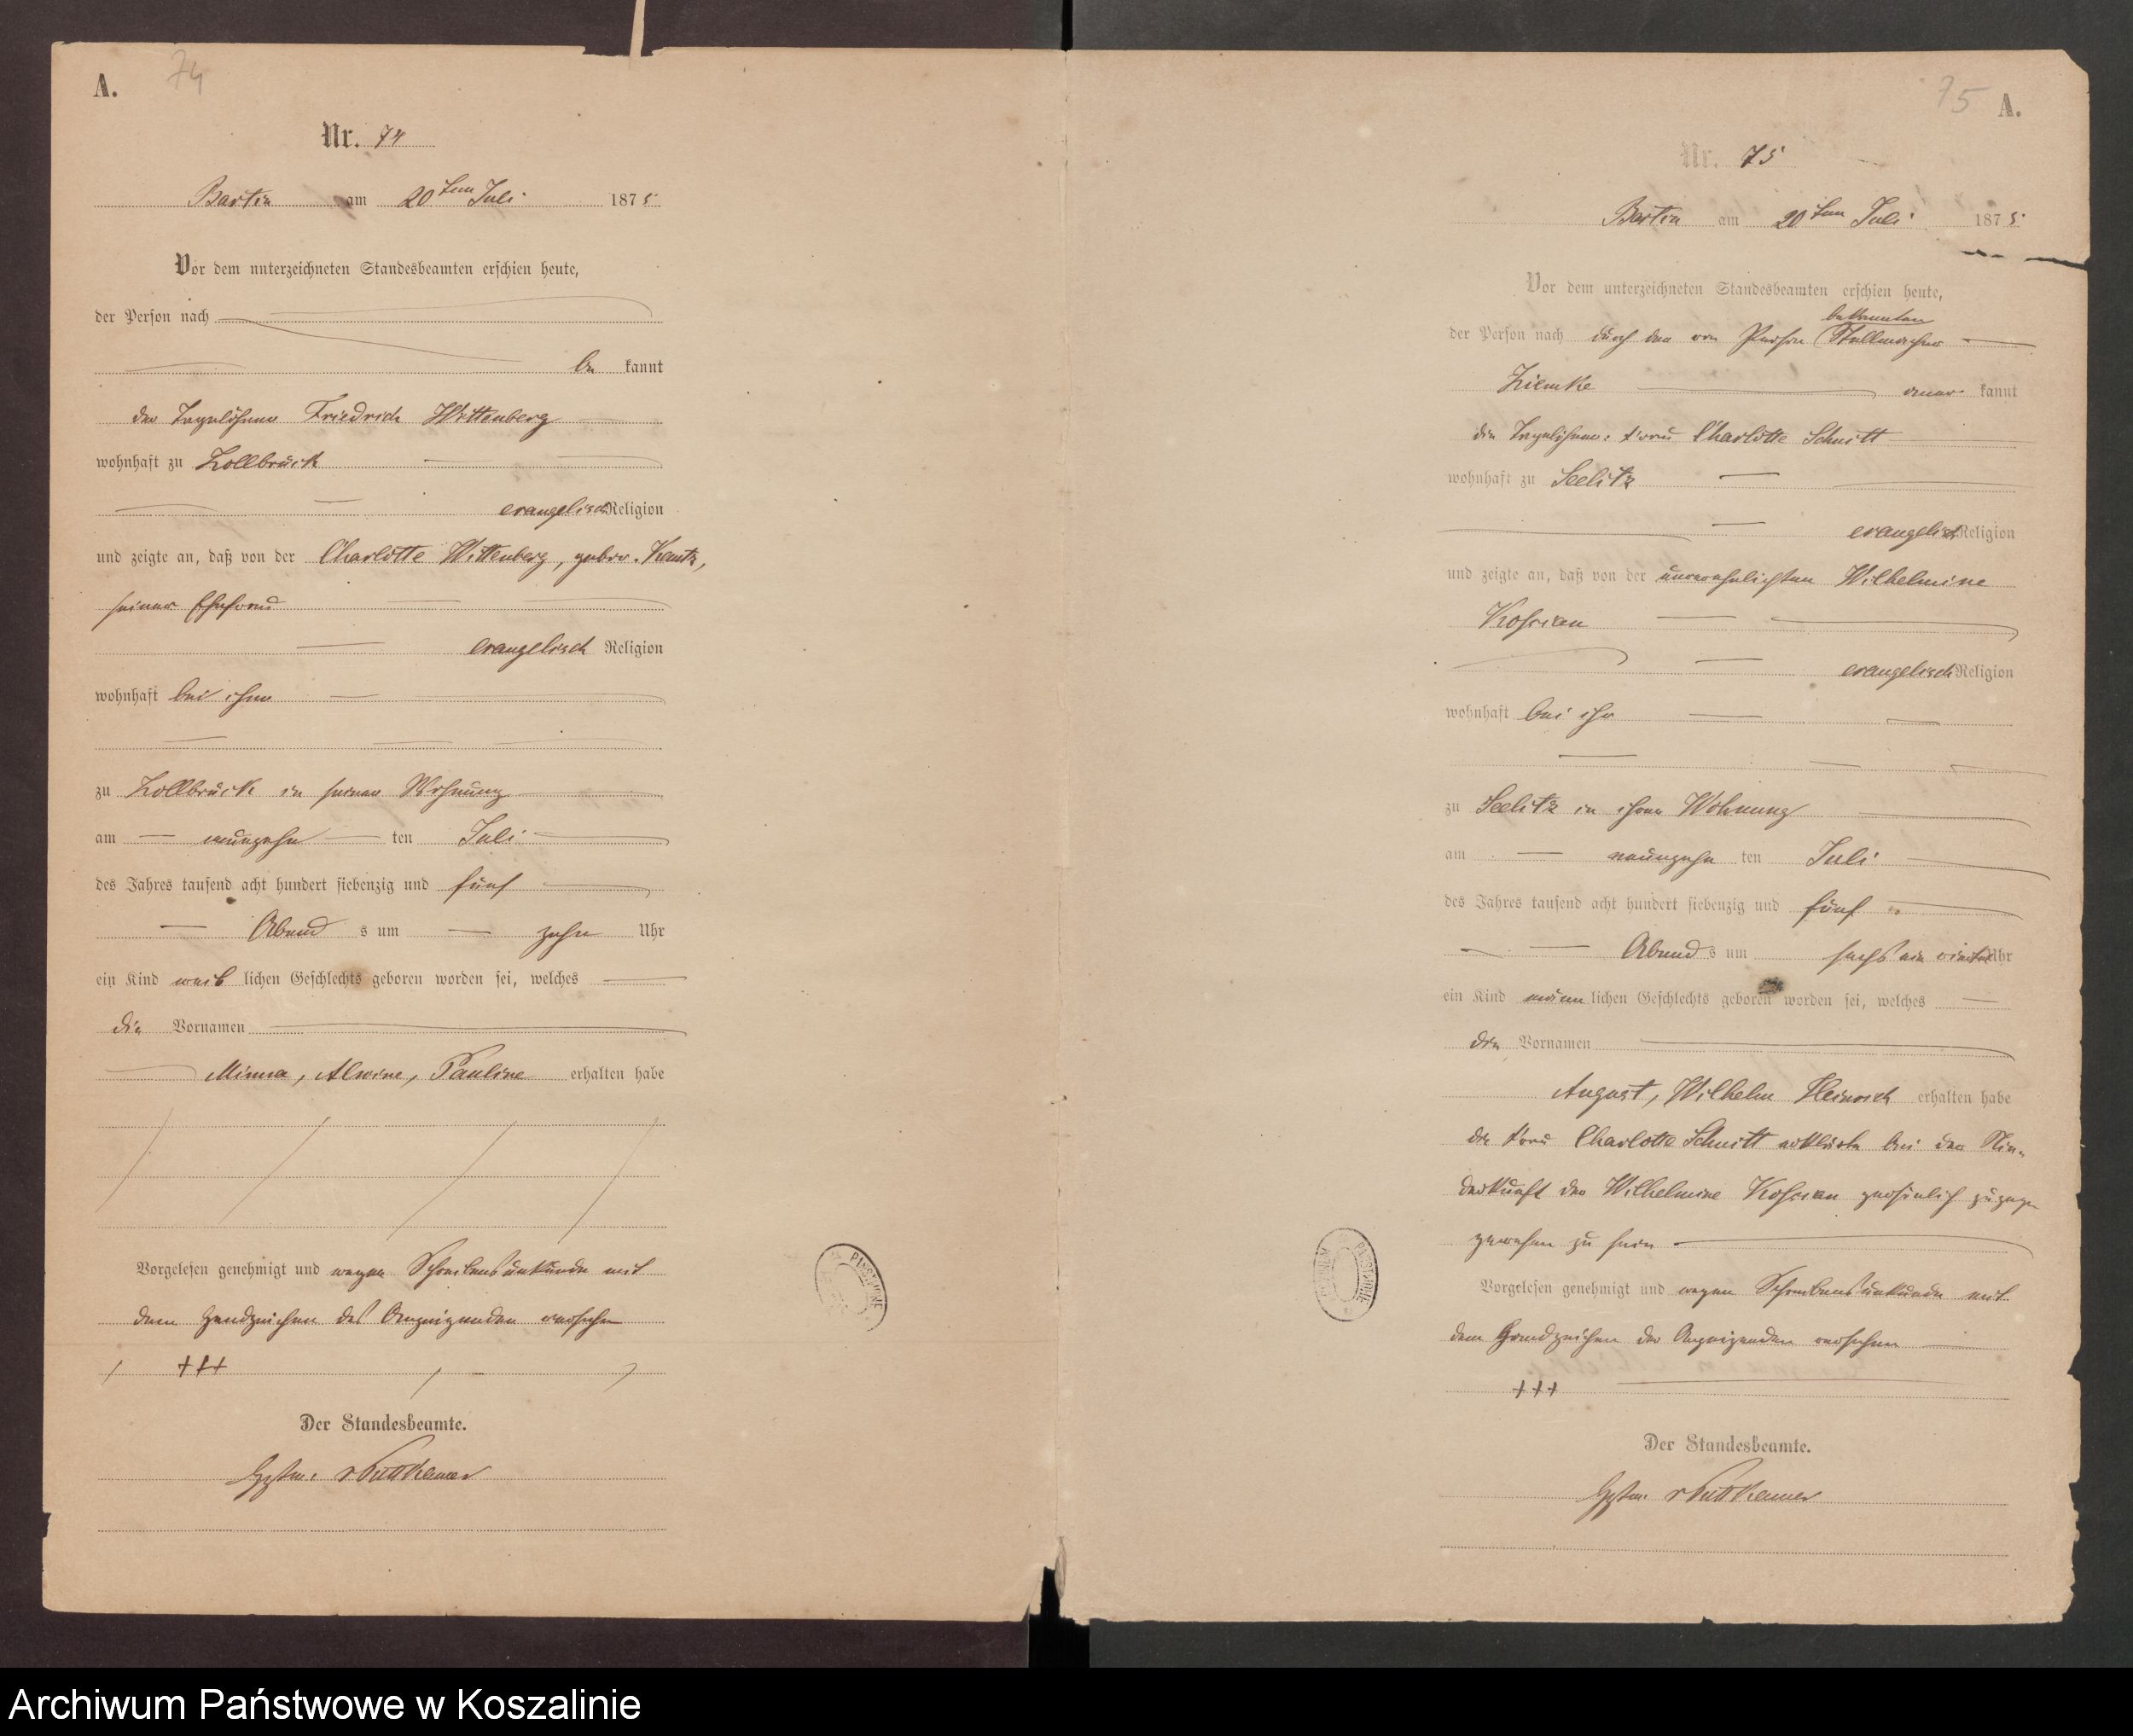 A.
74
Nr. 74
Bartin am 20ten Juli 1875
Vor dem unterzeichneten Standesbeamten erschien heute,
der Person nach
be kannt
der Tagelöhner Friedrich Wittenberg
wohnhaft zu Zollbrück
evangelisch Religion
und zeigte an, daß von der Charlotte Wittenberg, gebor.
seiner Ehefrau
evangelisch Religion
wohnhaft bei ihm
zu Zollbrück in seiner Wohnung
am neunzehn ten Juli
des Jahres tausend acht hundert siebenzig und fünf
Abend s um zehn Uhr
ein Kind weib lichen Geschlechts geboren worden sei, welches
die Vornamen
Minna, Alwine, Pauline erhalten habe
Vorgelesen genehmigt und wegen Schreibensunkunde mit
dem Handzeichen des Anzeigenden versehen
+++
Der Standesbeamte.
v Puttkamer
PAŃSTWOWE
75
A.
Nr. 75
Bartin am 20ten Juli 1875
Vor dem unterzeichneten Standesbeamten erschien heute,
bekannten
der Person nach durch den von Person Stellmacher
Ziemke aner kannt
die Tagelöhner: Frau Charlotte Schmitt
wohnhaft zu Seelitz
evangelisch Religion
und zeigte an, daß von der unverehelichten Wilhelmine
evangelisch Religion
wohnhaft bei ihr
zu Seelitz in ihrer Wohnung
am neunzehn ten Juli
des Jahres tausend acht hundert siebenzig und fünf
Abend s um sechs ein viertel Uhr
ein Kind männ lichen Geschlechts geboren worden sei, welches
die Vornamen
August, Wilhelm Heinrich erhalten habe
die Frau Charlotte Schmitt erklärte bei der Nie-
derkunft der Wilhelmine persönlich zugegen
gewesen zu sein
Vorgelesen genehmigt und wegen Schreibensunkunde mit
dem Handzeichen der Anzeigenden versehen
+++
Der Standesbeamte.
v Puttkamer
PAŃSTWOWE
Archiwum Państwowe w Koszalinie